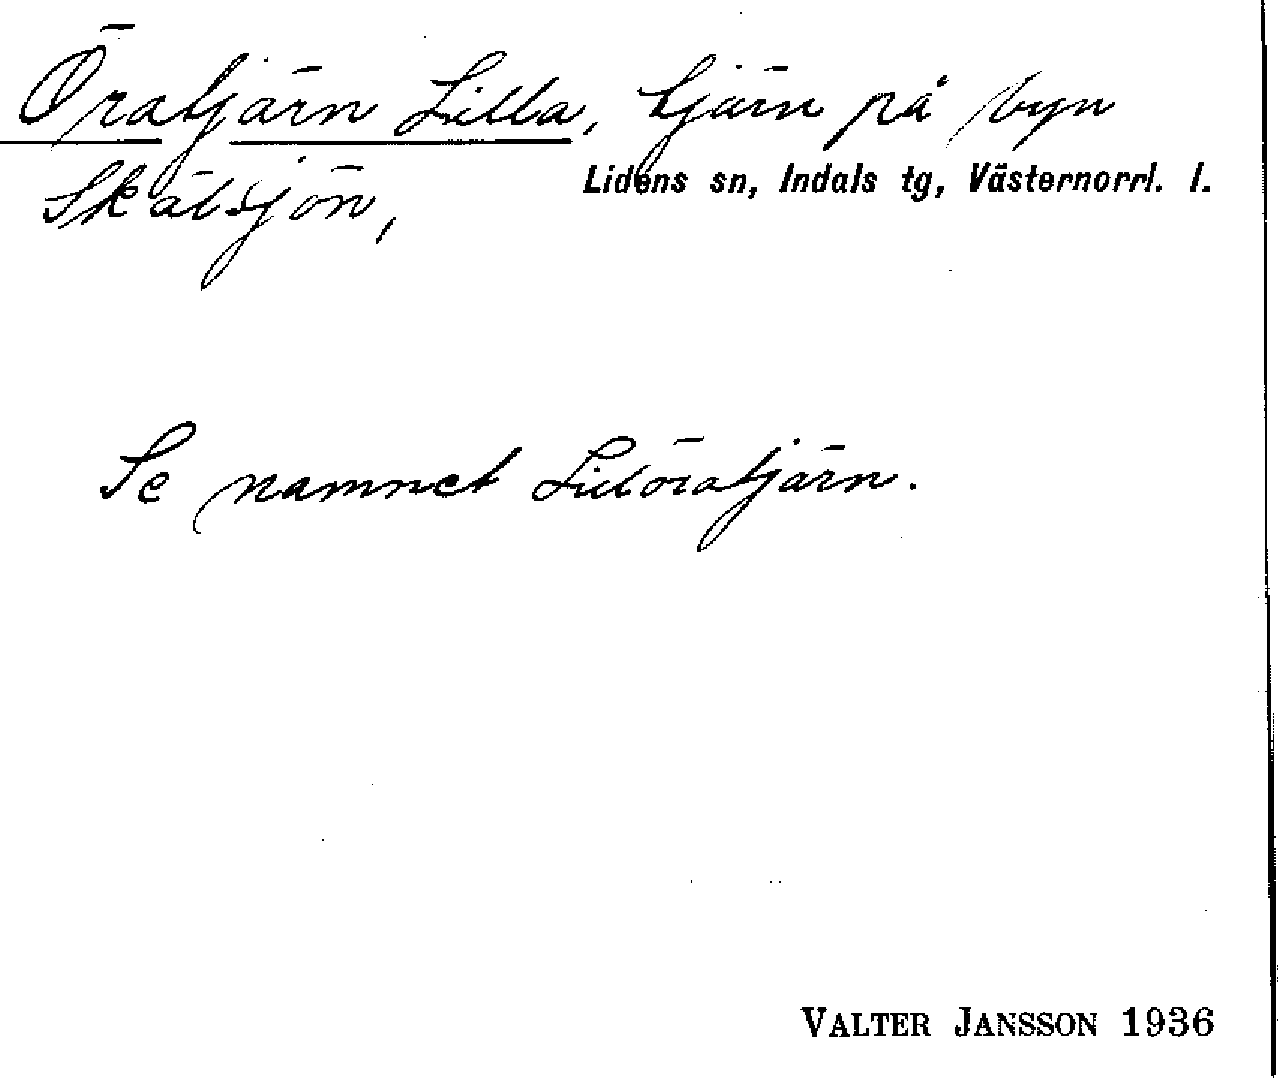 Öratjärn Lilla, tjärn på byn
Skälsjön,
Lidens sn, Indals tg, Västernorrl. l.
Se namnet Lillöratjärn.
VALTER JANSSON 1936